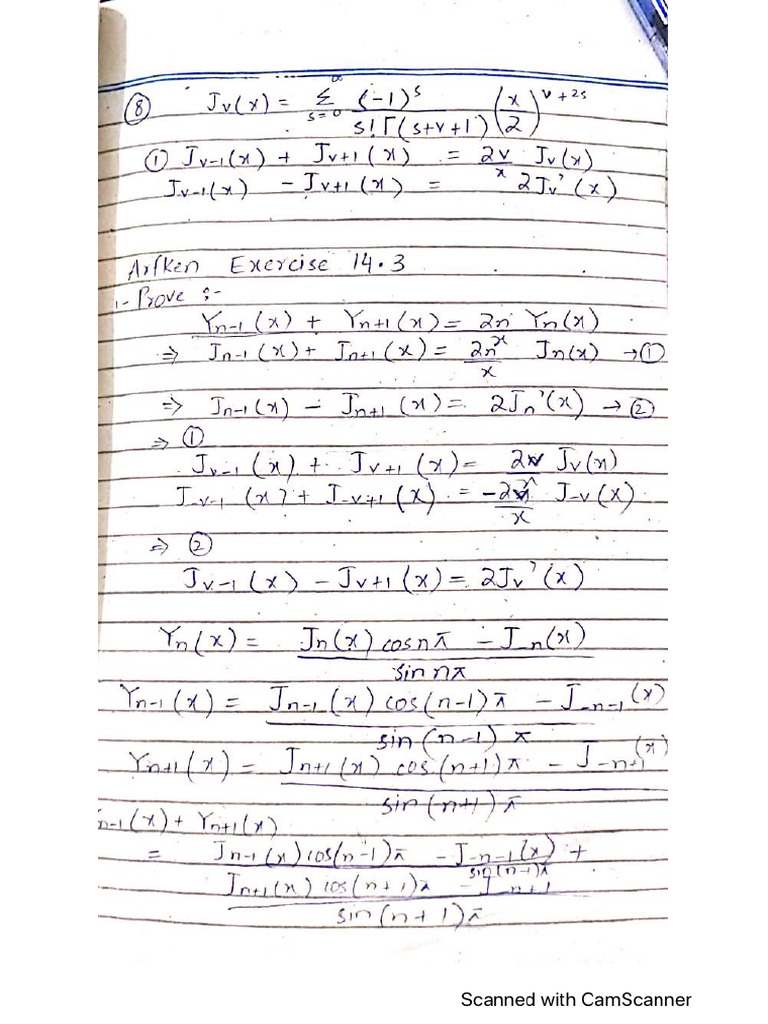 ⑧ Jv(x) = ∞Σs=0 (-1)^s / s!Γ(s+v+1) (x/2)^v+2s
① Jv-1(x) + Jv+1(x) = 2v/x Jv(x)
Jv-1(x) - Jv+1(x) = 2Jv'(x)
Arfken Exercise 14.3
1- Prove :-
Yn-1(x) + Yn+1(x) = 2n/x Yn(x)
⇒ Jn-1(x) + Jn+1(x) = 2n/x Jn(x) → ①
⇒ Jn-1(x) - Jn+1(x) = 2Jn'(x) → ②
⇒ ①
Jv-1(x) + Jv+1(x) = 2v/x Jv(x)
J-v-1(x) + J-v+1(x) = -2v/x J-v(x)
⇒ ②
Jv-1(x) - Jv+1(x) = 2Jv'(x)
Yn(x) = Jn(x) cosnπ - J-n(x) / sin nπ
Yn-1(x) = Jn-1(x) cos(n-1)π - J-n-1(x) / sin(n-1)π
Yn+1(x) = Jn+1(x) cos(n+1)π - J-n+1(x) / sin(n+1)π
n-1(x) + Yn+1(x)
= Jn-1(x) cos(n-1)π - J-n-1(x) / sin(n-1)π +
Jn+1(x) cos(n+1)π - J-n+1 / sin(n+1)π
Scanned with CamScanner